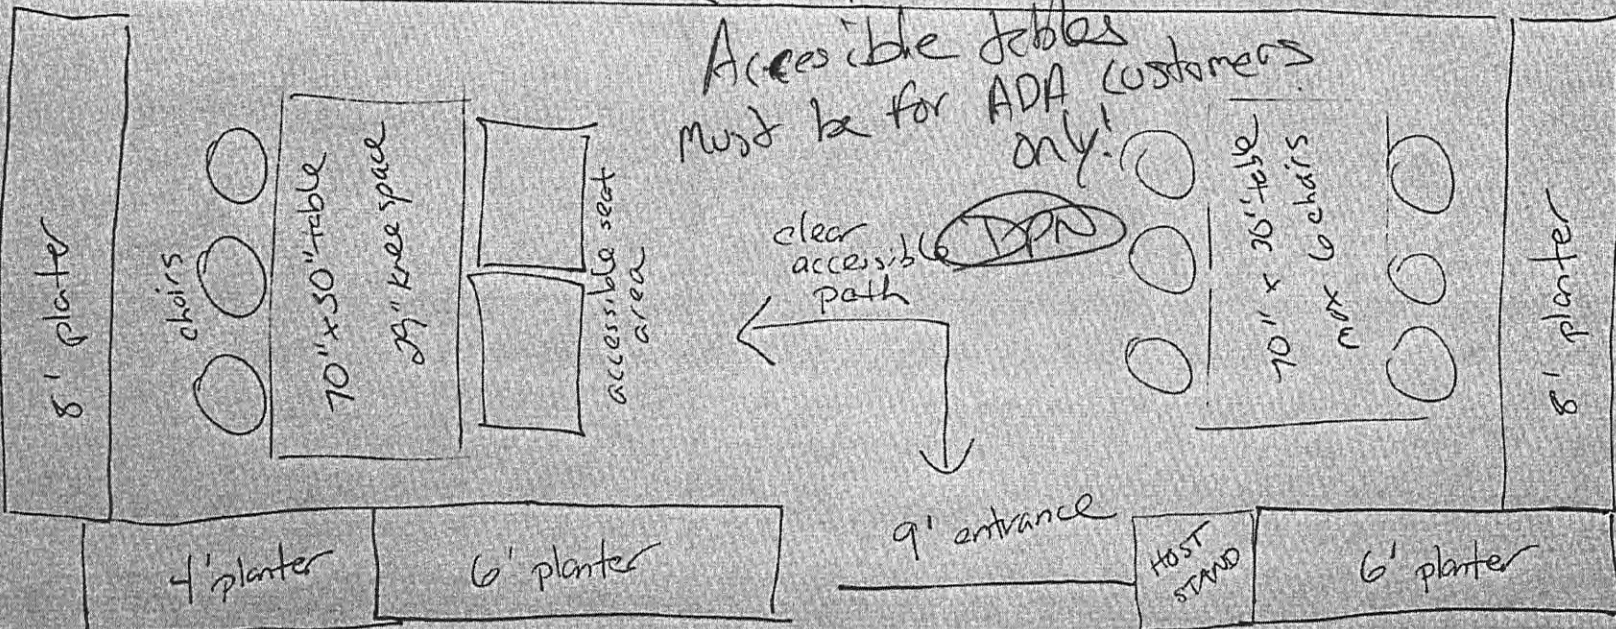 Accesible tables
must be for ADA customers
only!
8' plater
chairs
70" x 30" table
29" knee space
accessible seat
area
clear
accessible
path
DPN
70" x 30" table
max 6 chairs
8' planter
4' planter
6' planter
9' entrance
HOST
STAND
6' planter